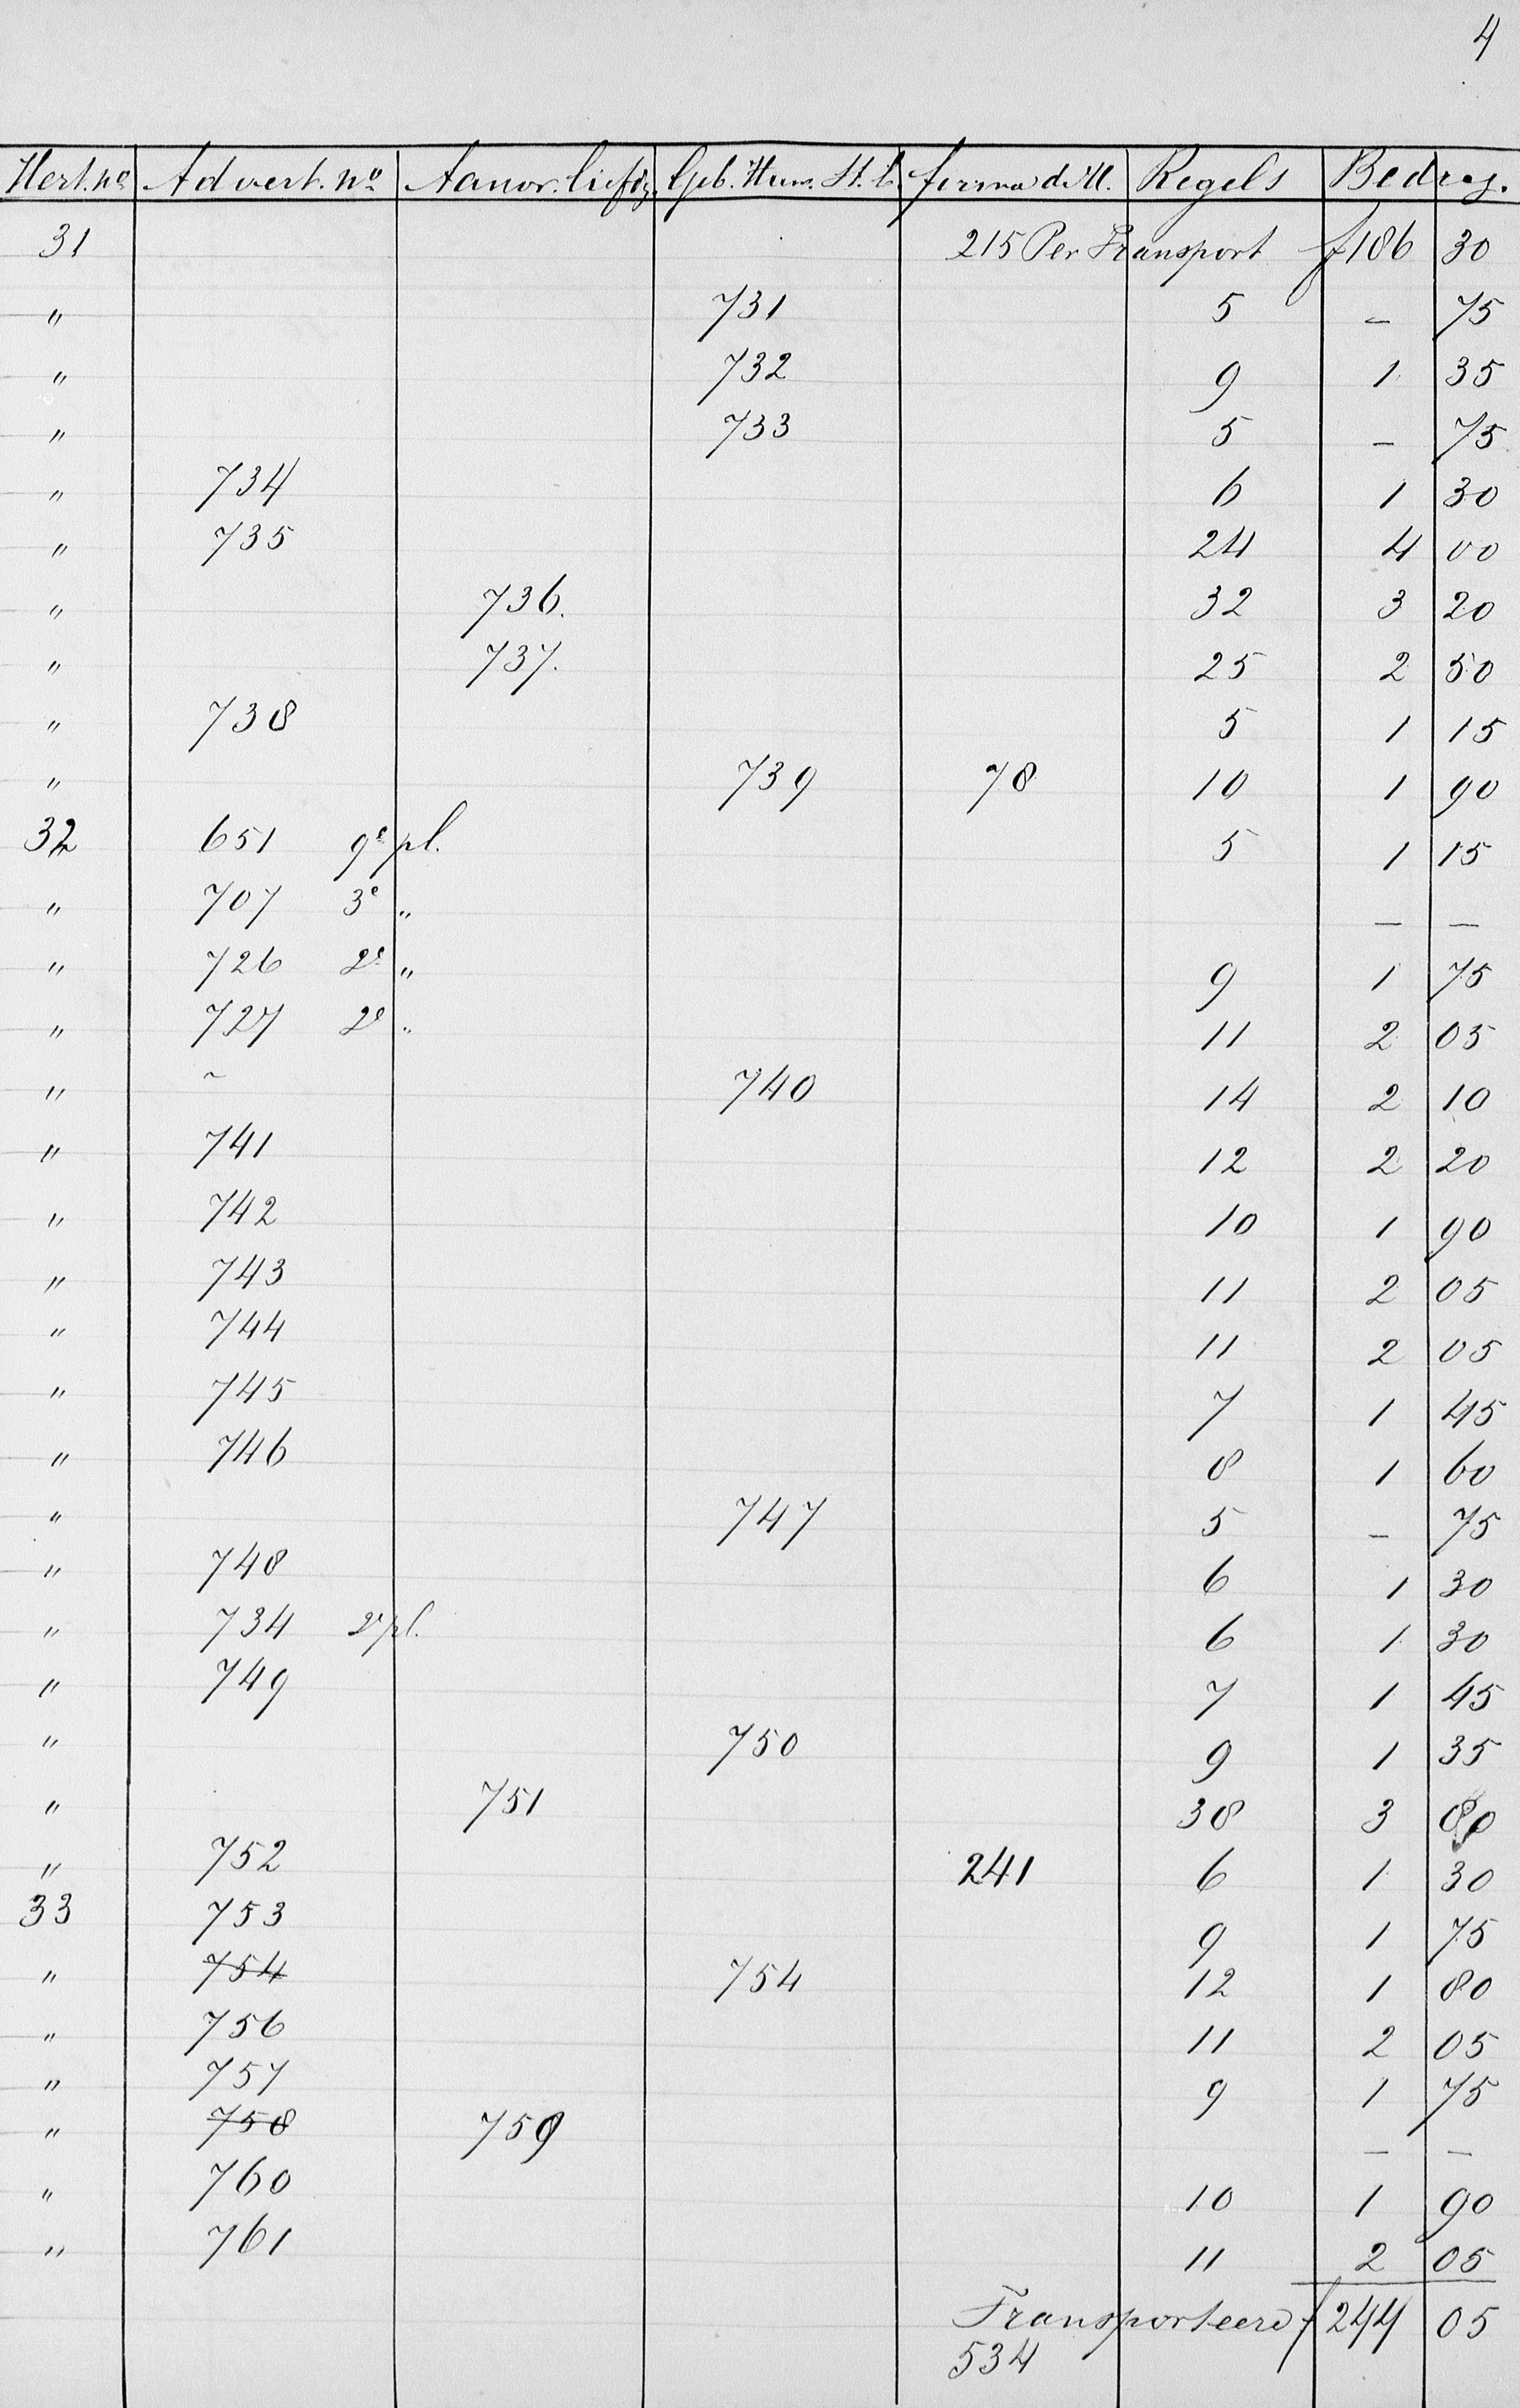 4
Hert. no Advert. no Aanw. liefdg. Geb. Hum. St. b. firma d. M. Regels Bedrag.
31 215 Per Transport f 186 30
" 731 5 – 75
" 732 9 1 35
" 733 5 – 75
" 734 6 1 30
" 735 24 4 00
" 736. 32 3 20
" 737. 25 2 50
" 738 5 1 15
" 739 78 10 1 90
32 651 9e pl. 5 1 15
" 707 3e " — —
" 726 2e " 9 1 75
" 727 2e " 11 2 05
" ~ 740 14 2 10
" 741 12 2 20
" 742 10 1 90
" 743 11 2 05
" 744 11 2 05
" 745 7 1 45
" 746 8 1 60
" 747 5 – 75
" 748 6 1 30
" 734 2e pl. 6 1 30
" 749 7 1 45
" 750 9 1 35
" 751 38 3 80
" 752 241 6 1 30
33 753 9 1 75
" 754 754 12 1 80
" 756 11 2 05
" 757 9 1 75
" 758 759 — —
" 760 10 1 90
" 761 11 2 05
Transporteere f 244 05
534